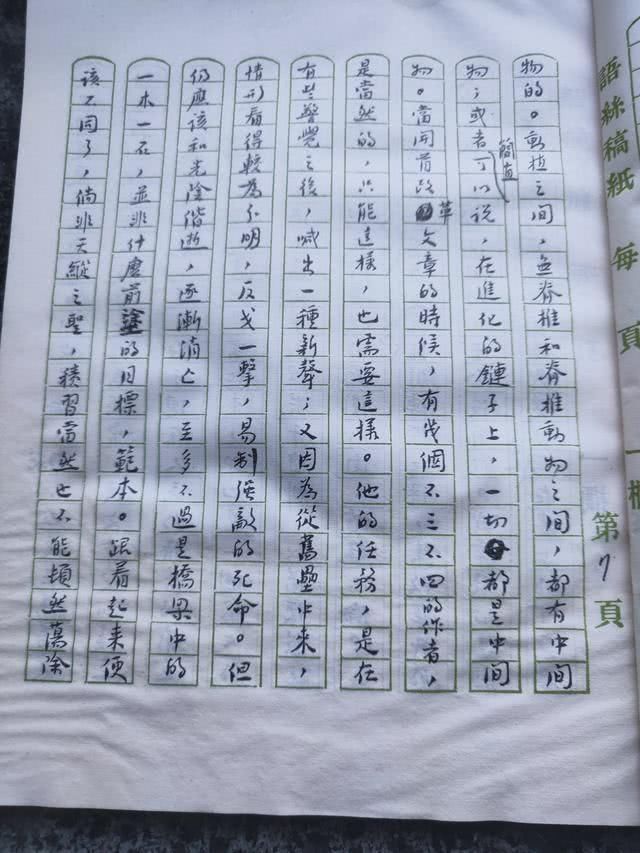 語絲稿紙 每頁
第7頁
物的。動植之間，無脊椎和脊椎動物之間，都有中間
物；或者簡直可以說，在進化的鏈子上，一切都是中間
物。當開首改革文章的時候，有幾個不三不四的作者，
是當然的，只能這樣，也需要這樣。他的任務，是在
有些警覺之後，喊出一種新聲；又因為從舊壘中來，
情形看得較為分明，反戈一擊，易制強敵的死命。但
仍應該和光陰偕逝，逐漸消亡，至多不過是橋梁中的
一木一石，並非什麼前塗的目標，範本。跟着起來便
該不同了，倘非天縱之聖，積習當然也不能頓然蕩除